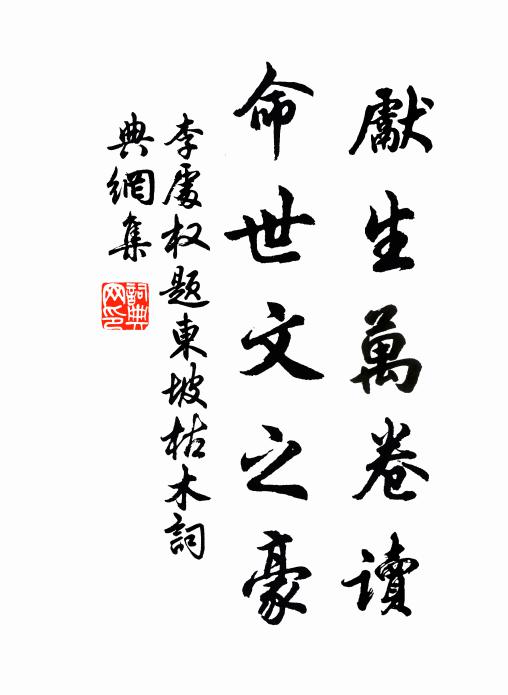 獻生萬卷讀
命世文之豪
李處权題東坡枯木詞
典網集
詞典網印